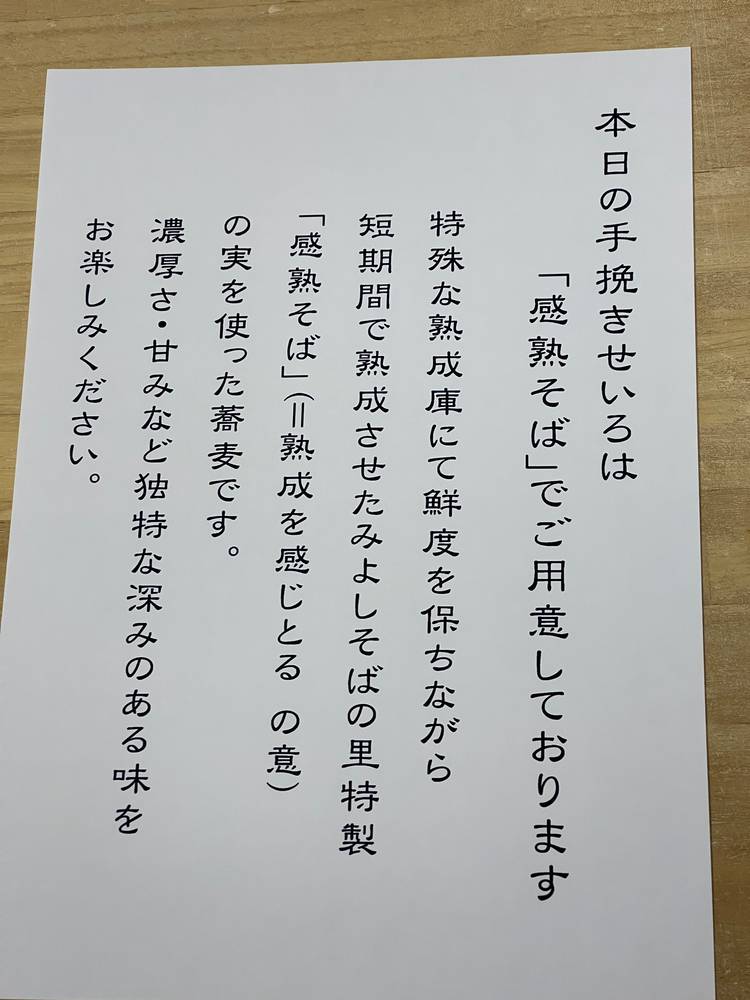 本日の手挽きせいろは
「感熟そば」でご用意しております
特殊な熟成庫にて鮮度を保ちながら
短期間で熟成させたみよしそばの里特製
「感熟そば」(=熟成を感じとる の意)
の実を使った蕎麦です。
濃厚さ・甘みなど独特な深みのある味を
お楽しみください。